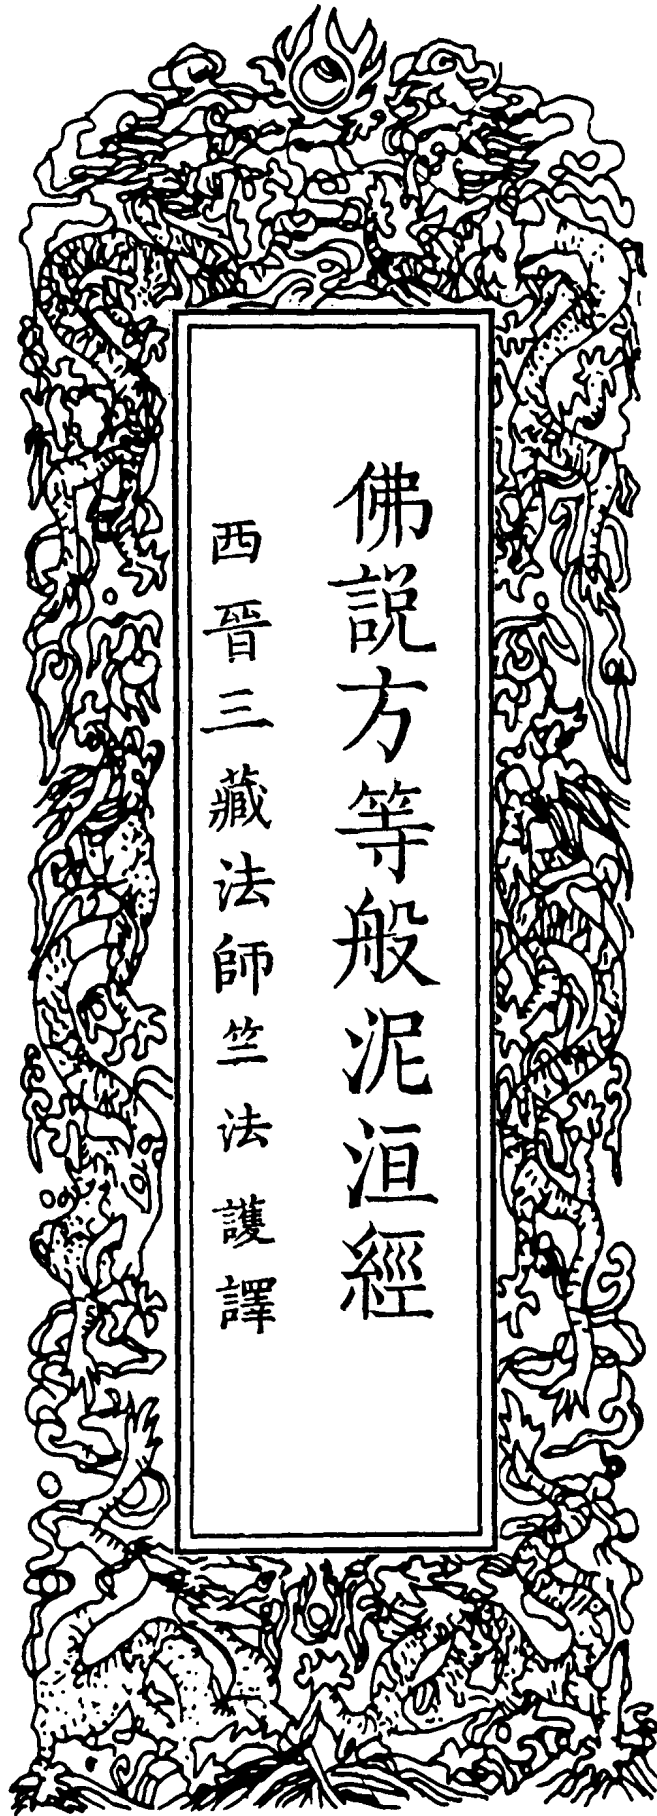 佛説方等般泥洹經
西晉三藏法師竺法護譯